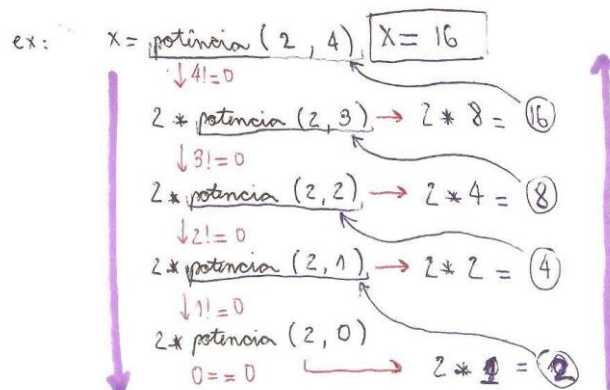 ex: x = potência (2, 4) X = 16
4! = 0
2 * potencia (2, 3) → 2 * 8 = 16
3! = 0
2 * potencia (2, 2) → 2 * 4 = 8
2! = 0
2 * potencia (2, 1) → 2 * 2 = 4
1! = 0
2 * potencia (2, 0)
0 == 0 → 2 * 1 = 2